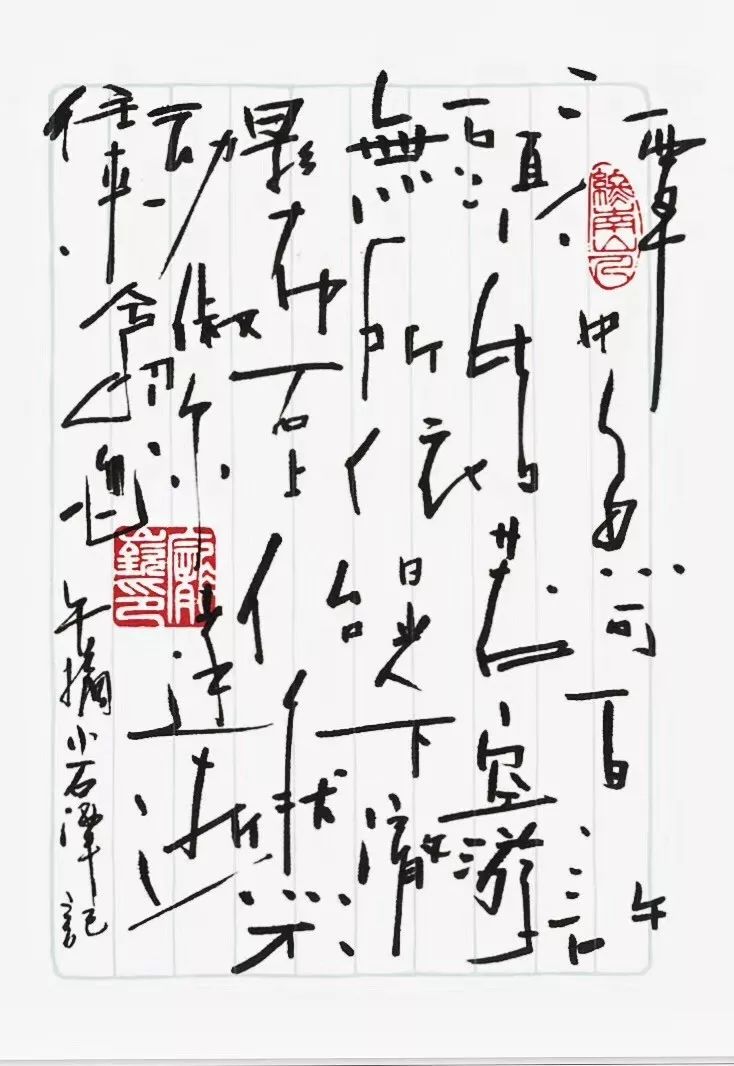 潭中魚可百許
頭皆若空游
無所依日光下澈
影布石上佁然不
動俶爾遠逝
往來翕忽
午摘小石潭記